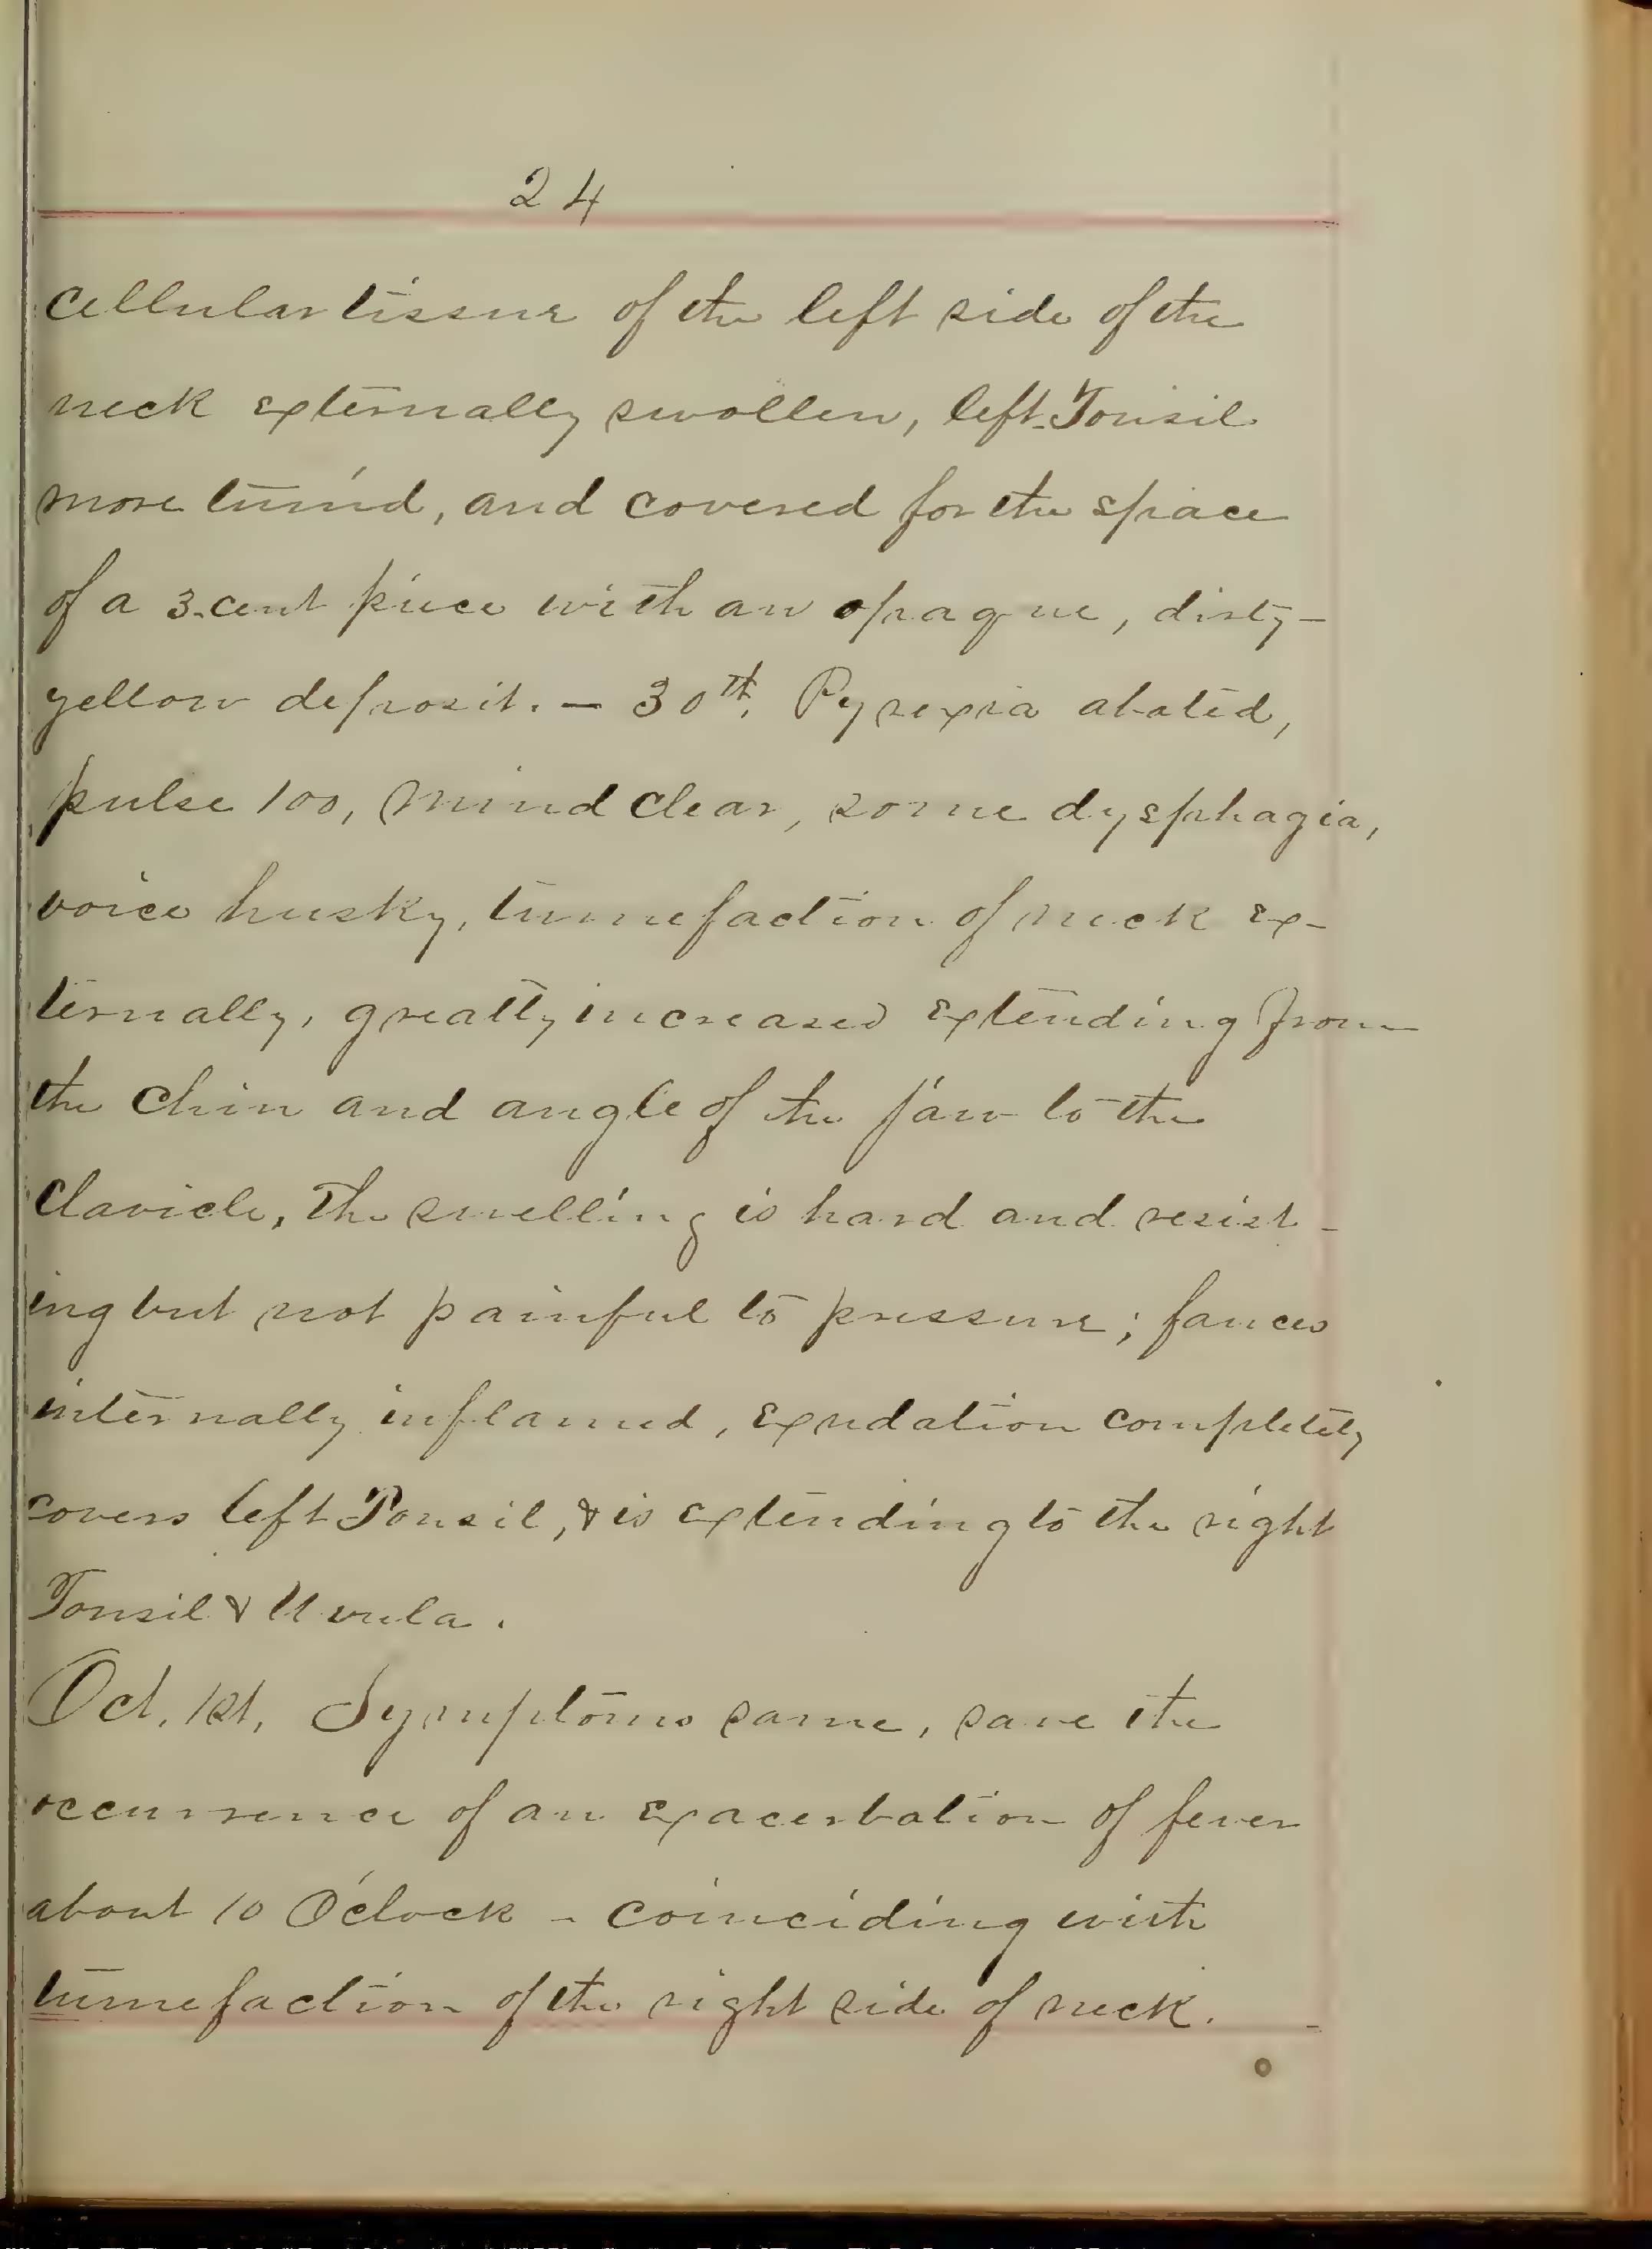 24
cellular tissue of the left side of the
neck externally swollen, left Tonsil
more tumid, and covered for the space
of a 3 cent piece with an opaque, dirty-
yellow deposit. — 30th. Pyrexia abated,
pulse 100, mind clear, some dysphagia,
voice husky, tumefaction of neck ex-
ternally, greatly increased extending from
the chin and angle of the jaw to the
clavicle, the swelling is hard and resist-
ing but not painful to pressure; fauces
internally inflamed, exudation completely
covers left Tonsil, & is extending to the right
Tonsil & Uvula.
Oct. 1st, Symptoms same, save the
occurrence of an exacerbation of fever
about 10 O'clock - coinciding with
tumefaction of the right side of neck.